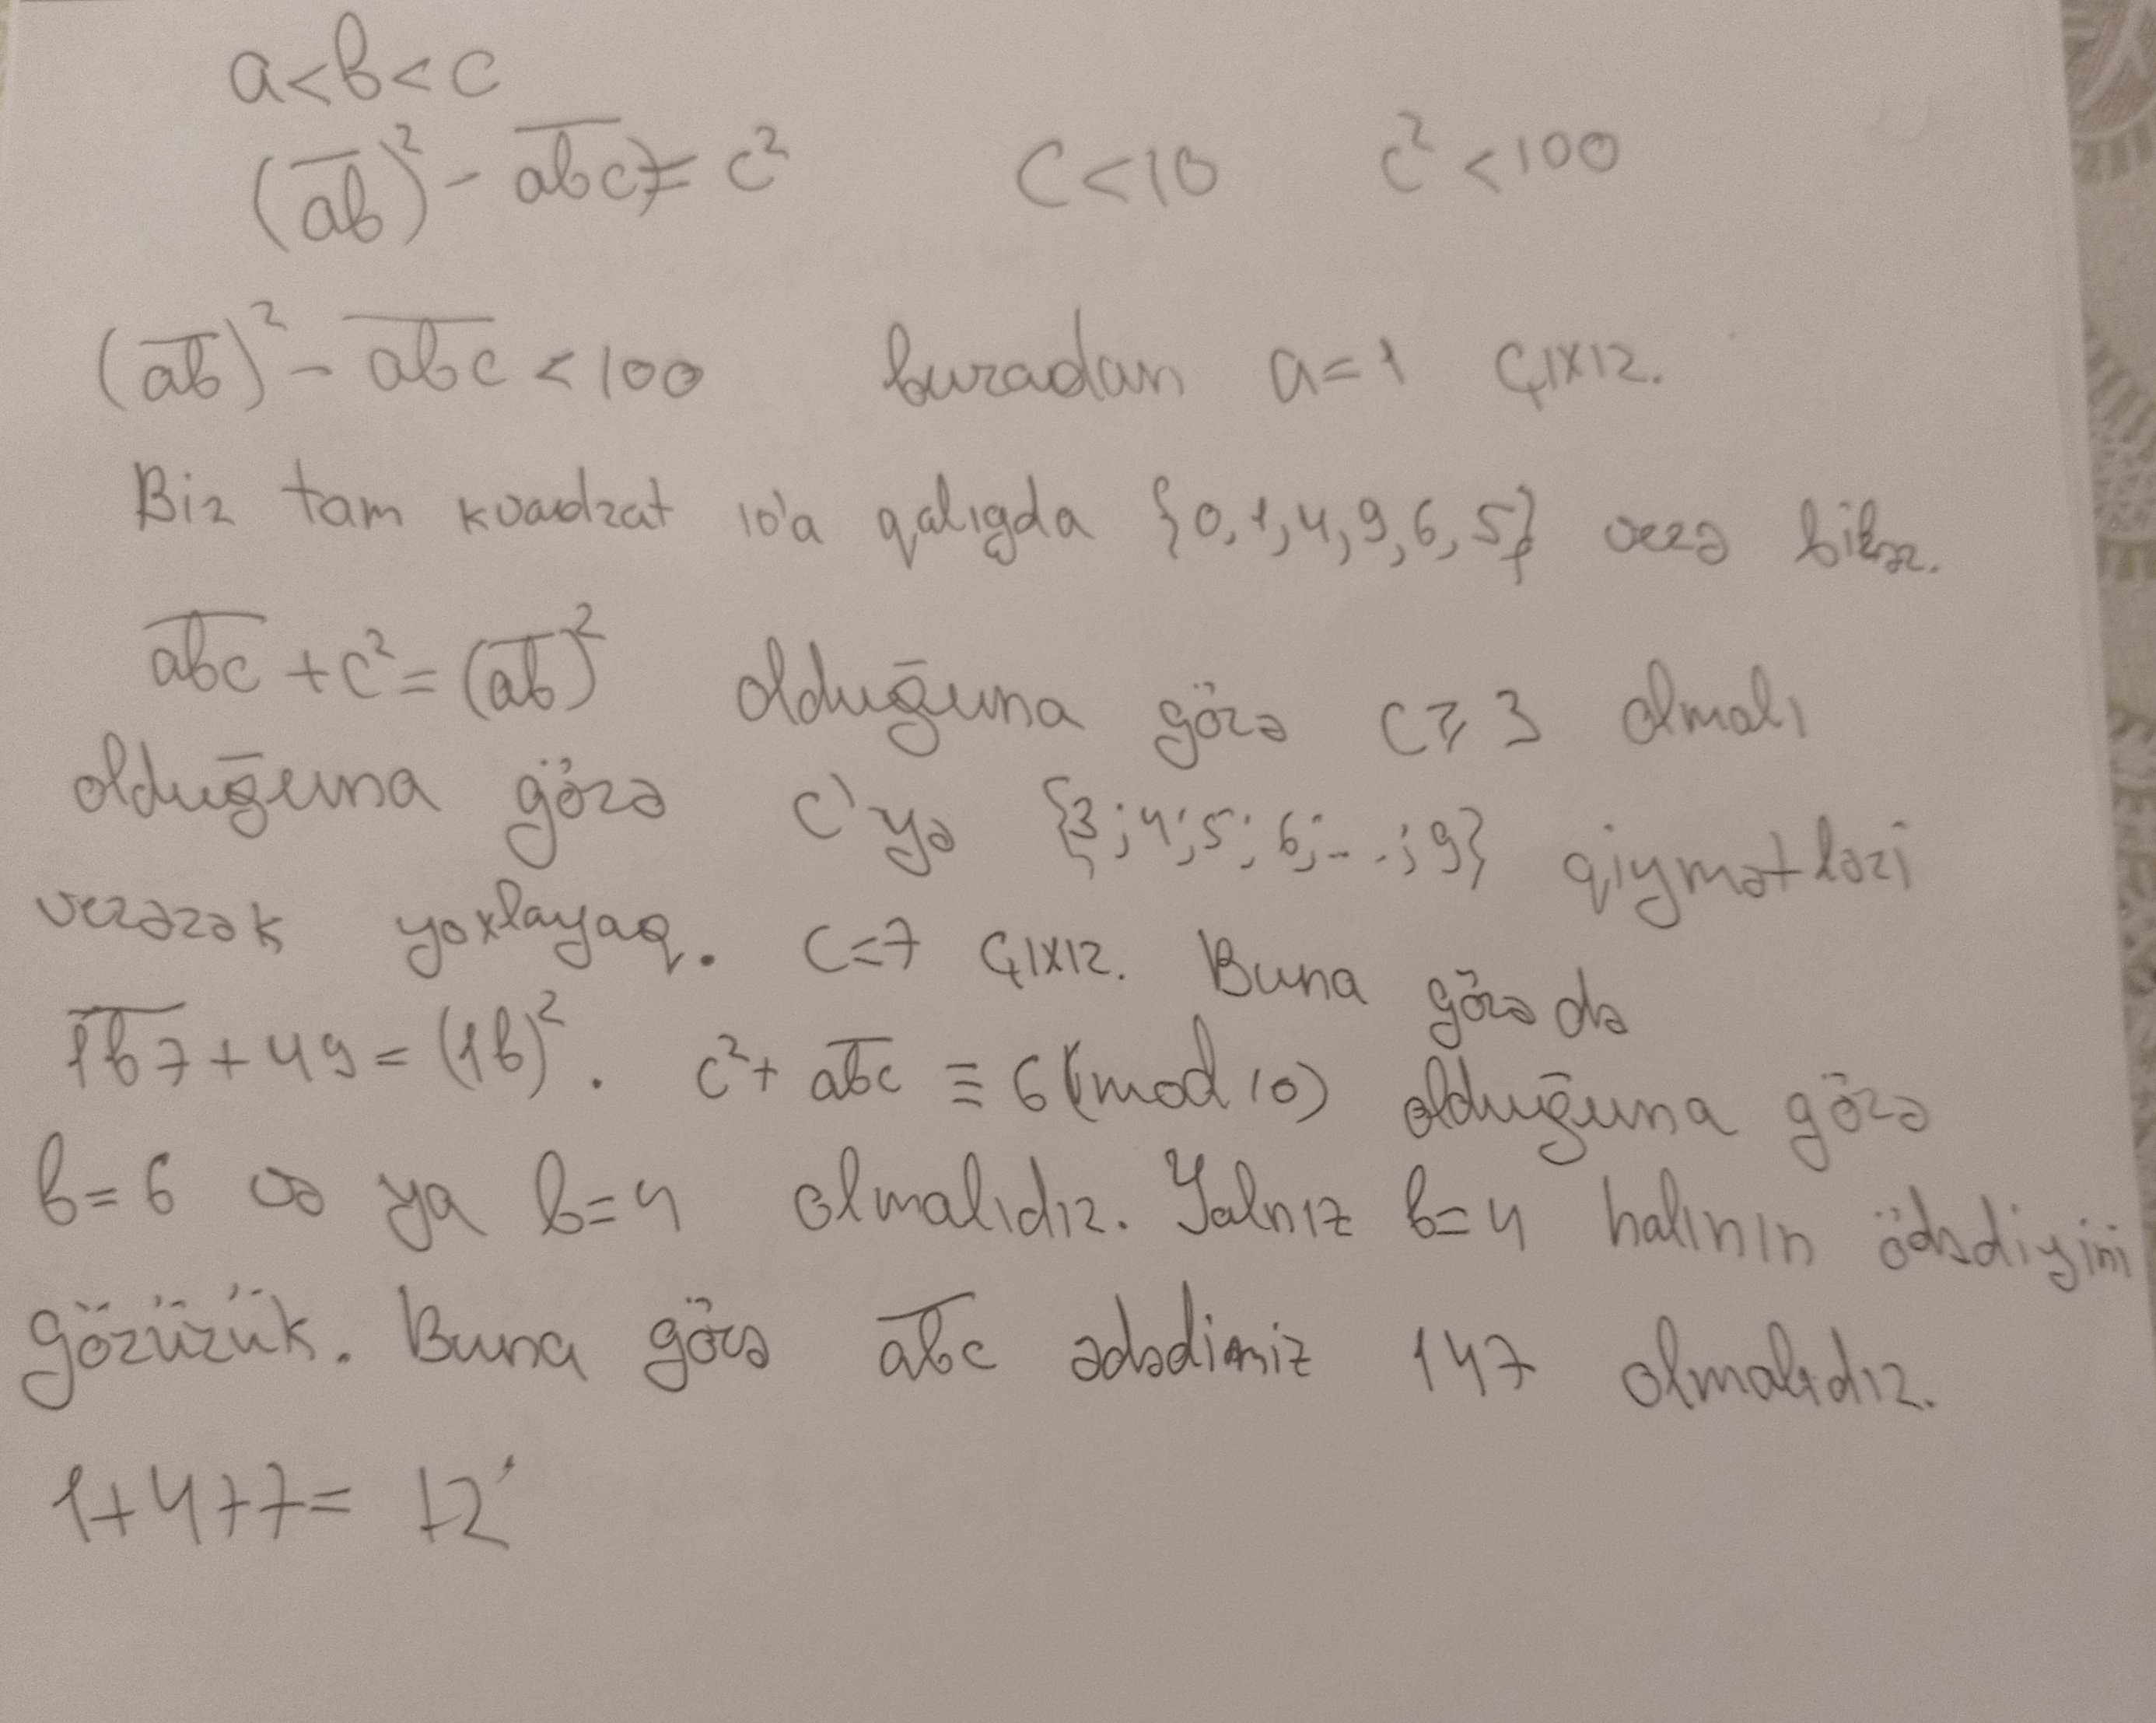 a<b<c
(ab)² - abc)= c² C<10 c²<100
(ab)² - abc < 100 buradan a=1 çıxır.
Biz tam kvadrat 10'a qalıgda {0,1,4,9,6,5} verə bilər.
abc + c² = (ab)² olduğuna görə c⩾3 olmalı
olduğuna görə c'yə {3;4;5;6;...;9} qiymətləri
verərək yoxlayaq. c=7 çıxır. Buna görə də
1b7+49=(1b)². c²+abc ≡ 6(mod 10) olduğuna görə
b=6 və ya b=4 olmalıdır. Yalnız b=4 halının ödədiyini
görürük. Buna görə abc ədədimiz 147 olmalıdır.
1+4+7= 12